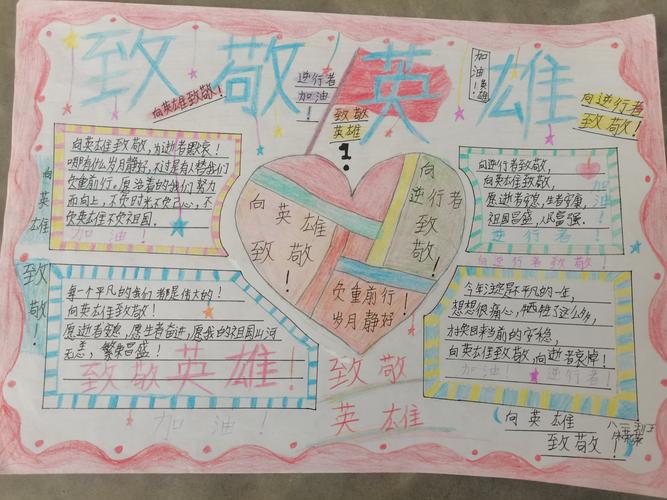 致敬英雄
向英雄致敬!
逆行者
加油!
致敬
英雄
加油!英雄
向逆行者
致敬!
向英雄致敬,为逝者默哀!
哪有什么岁月静好,不过是有人替我们
负重前行。愿活着的我们努力
而向上,不负时光不负己心,不
负英雄不负祖国。
加油!
向英雄
致敬!
向英雄
致敬!
向逆行者
致敬!
负重前行!
岁月静好!
向逆行者致敬,
向英雄致敬,
愿逝者安息,生者安康,
祖国昌盛,人民富强.
逆行者!
加油!
向逆行者致敬!
每一个平凡的我们都是伟大的!
向英雄致敬!
愿逝者安息,愿生者奋进,愿我的祖国山河
无恙,繁荣昌盛!
致敬英雄!
加油!
致敬
英雄
今年注定是不平凡的一年,
想想很痛心,牺牲了这么多,
才换回来当前的安稳,
向英雄致敬,向逝者哀悼!
加油! 逆行者!
向英雄
致敬!